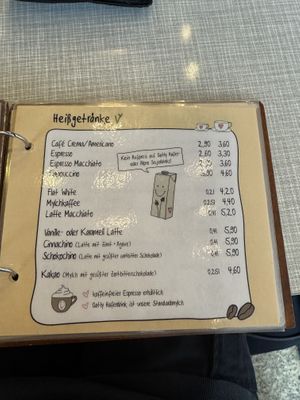 Heißgetränke
Café Crema/Americano 2,90 3,60
Espresso 2,60 3,30
Espresso Macchiato 3,60
Cappuccino 3,90 4,60
Kein Aufpreis auf Oatly Hafer-
oder Mönk Sojadrinks!
Flat White 0,2l 4,20
Mylchkaffee 0,25l 4,40
Latte Macchiato 0,4l 5,20
Vanille- oder Karamell Latte 0,4l 5,90
Cinnachino (Latte mit Zimt + Agave) 0,4l 5,90
Schokochino (Latte mit gesüßter Zartbitterschokolade) 0,4l 5,90
Kakao (Mylch mit gesüßter Zartbitterschokolade) 0,25l 4,60
koffeinfreier Espresso erhältlich
Oatly Haferdrink ist unsere Standardmylch